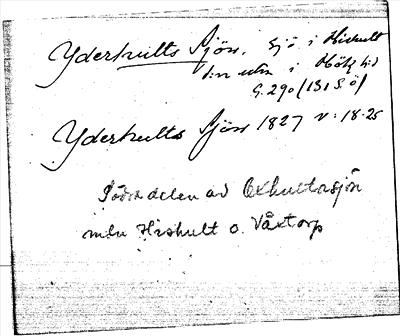 Yderhults Sjön. Sjö i Hishult
S. 290 (131 S. ö)
Yderhults Sjön 1827 v: 18.25
Södra delen av Oxhultasjön
mln Hishult o. Våxtorp